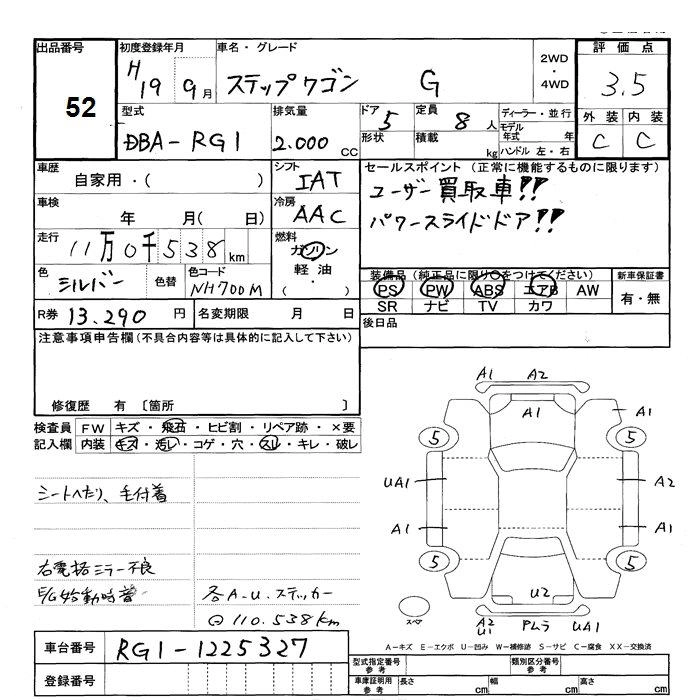 出品番号 初度登録年月 車名・グレード 2WD・4WD 評価点
52 H19 9月 ステップワゴン G 3.5
型式 排気量 ドア 5 定員 8人 ディーラー・並行 外装 内装
DBA-RG1 2.000 CC 形状 積載 kg モデル年式 年 C C
ハンドル 左・右
車歴 シフト セールスポイント (正常に機能するものに限ります)
自家用・( ) IAT ユーザー買取車!!
車検 冷房 パワースライドドア!!
年 月( 日) AAC
走行 燃料
11万0千538km ガソリン
軽油・
・( )
色 色替 色コード 装備品(純正品に限り○をつけてください) 新車保証書
シルバー NH700M PS PW ABS エアB AW 有・無
SR ナビ TV カワ
R券 13.290 円 名変期限 月 日 後日品
注意事項申告欄(不具合内容等は具体的に記入して下さい)
修復歴 有 〔箇所 〕
検査員 FW キズ・飛石・ヒビ割・リペア跡・×要
記入欄 内装 キズ・汚レ・コゲ・穴・スレ・キレ・破レ
シートヘたり、毛付着
右電格ミラー不良
E/G始動時音 各A-U.ステッカー
@110.538km
A1 A2
A1 A1
5 5
UA1 A2
A1 A1
5 5
U2
スペア A2 U1 PムラUA1
A-キズ E-エクボ U-凹み W-補修跡 S-サビ C-腐食 XX-交換済
車台番号 RG1-1225327
登録番号
型式指定番号 参考 類別区分番号 参考
車庫証明用 参考 長さ cm 幅 cm 高さ cm